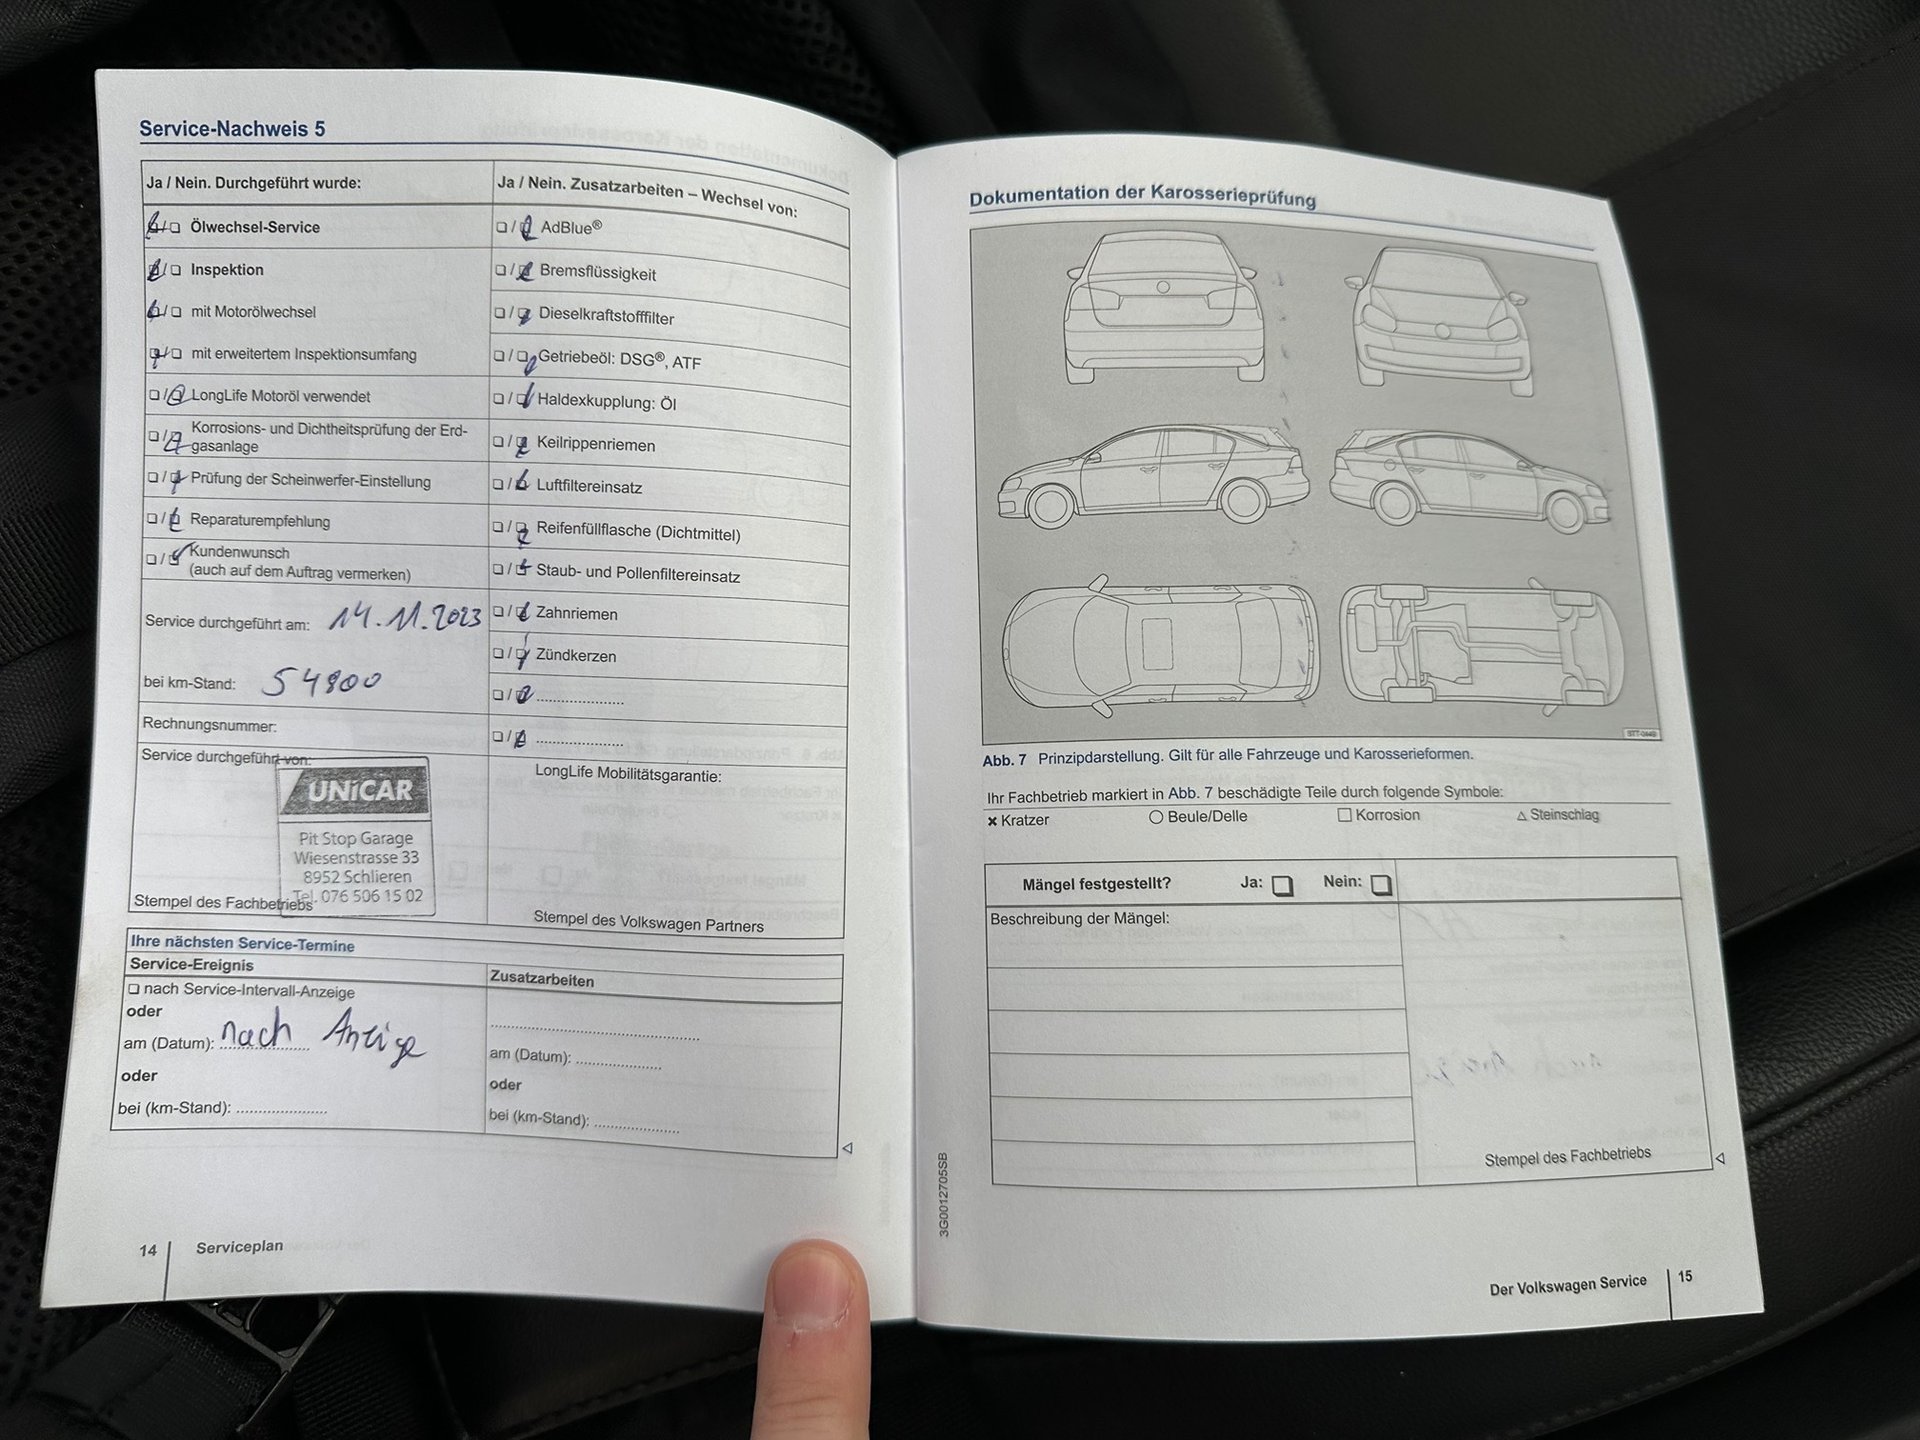 Service-Nachweis 5
Ja / Nein. Durchgeführt wurde:
☒/☐ Ölwechsel-Service
☒/☐ Inspektion
☒/☐ mit Motorölwechsel
☒/☐ mit erweitertem Inspektionsumfang
☐/☒ LongLife Motoröl verwendet
☐/☒ Korrosions- und Dichtheitsprüfung der Erd-
gasanlage
☐/☒ Prüfung der Scheinwerfer-Einstellung
☐/☒ Reparaturempfehlung
☐/☒ Kundenwunsch
(auch auf dem Auftrag vermerken)
Service durchgeführt am: 14.11.2023
bei km-Stand: 54800
Rechnungsnummer:
Service durchgeführt von:
UNiCAR
Pit Stop Garage
Wiesenstrasse 33
8952 Schlieren
Tel. 076 506 15 02
Stempel des Fachbetriebs
Ja / Nein. Zusatzarbeiten – Wechsel von:
☐/☒ AdBlue®
☐/☒ Bremsflüssigkeit
☐/☒ Dieselkraftstofffilter
☐/☒ Getriebeöl: DSG®, ATF
☐/☒ Haldexkupplung: Öl
☐/☒ Keilrippenriemen
☐/☒ Luftfiltereinsatz
☐/☒ Reifenfüllflasche (Dichtmittel)
☐/☒ Staub- und Pollenfiltereinsatz
☐/☒ Zahnriemen
☐/☒ Zündkerzen
☐/☒ ....................
☐/☒ ....................
LongLife Mobilitätsgarantie:
Stempel des Volkswagen Partners
Ihre nächsten Service-Termine
Service-Ereignis
☐ nach Service-Intervall-Anzeige
oder
am (Datum): nach Anzeige
oder
bei (km-Stand): ....................
Zusatzarbeiten
....................
am (Datum): ....................
oder
bei (km-Stand): ....................
14 Serviceplan
Dokumentation der Karosserieprüfung
Abb. 7 Prinzipdarstellung. Gilt für alle Fahrzeuge und Karosserieformen.
Ihr Fachbetrieb markiert in Abb. 7 beschädigte Teile durch folgende Symbole:
× Kratzer ○ Beule/Delle □ Korrosion △ Steinschlag
Mängel festgestellt? Ja: ☐ Nein: ☐
Beschreibung der Mängel:
Stempel des Fachbetriebs
3G0012705SB
Der Volkswagen Service 15